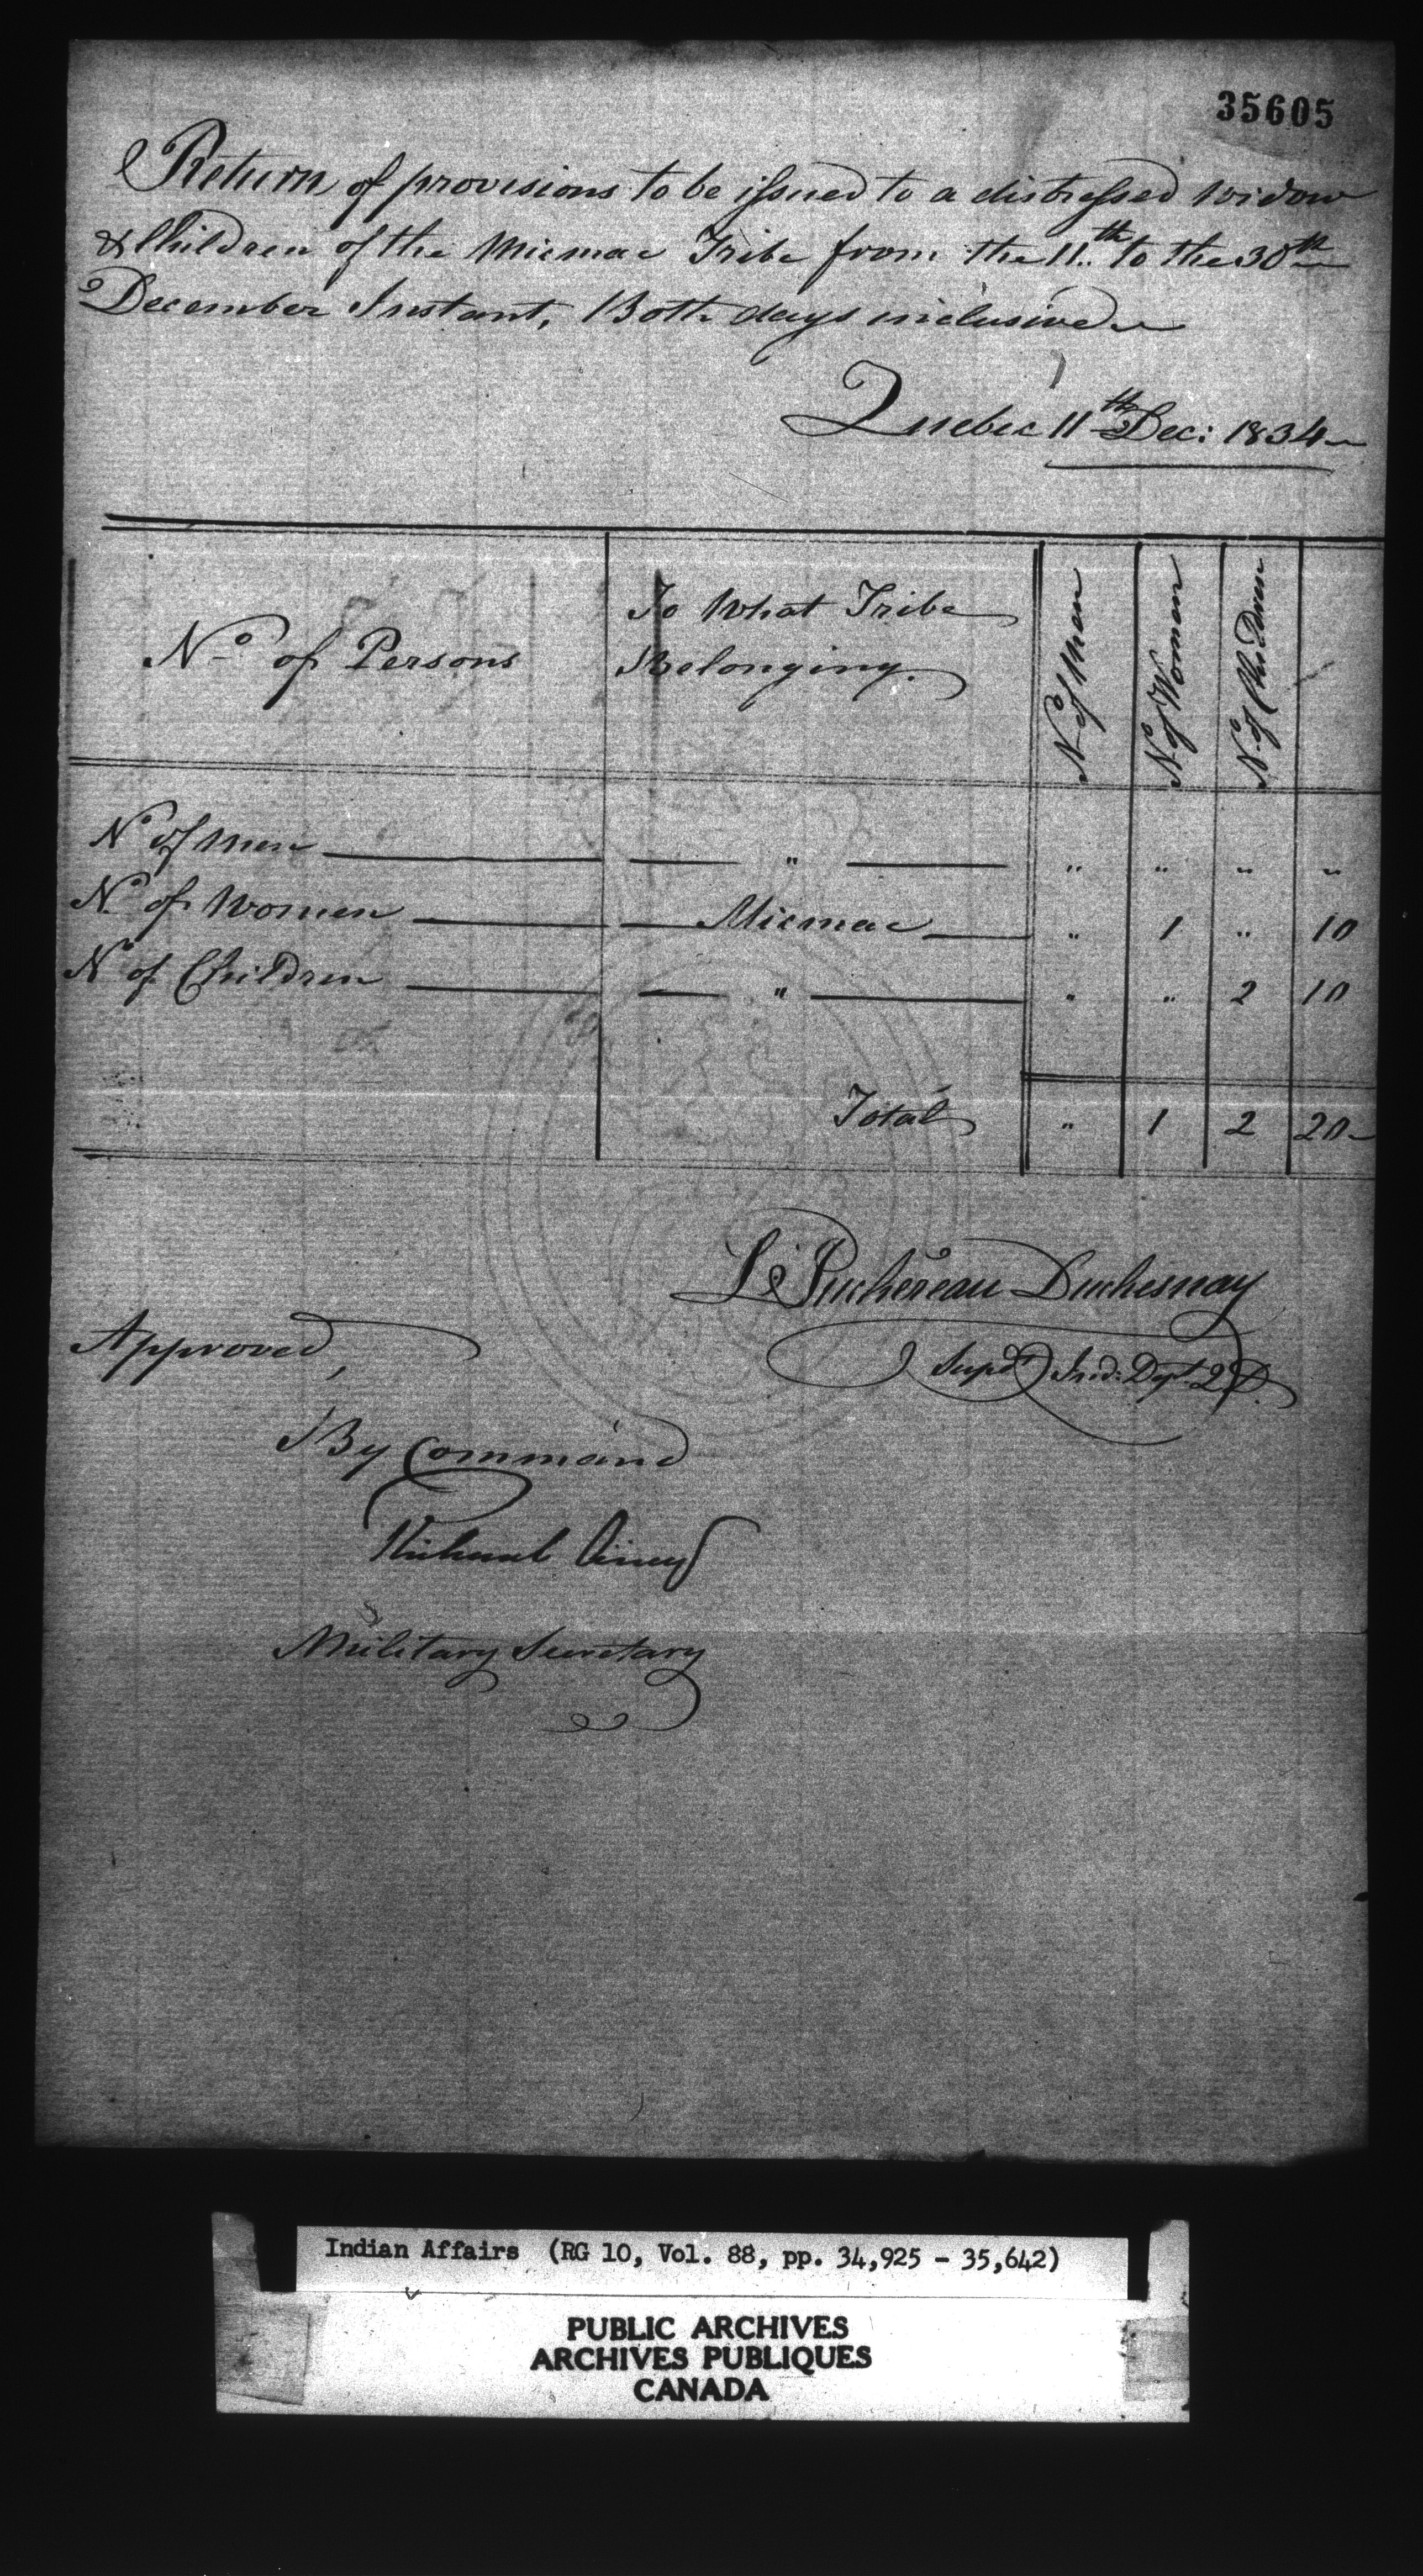 35605
Return of provisions to be issued to a distressed Widow
& Children of the Micmac Tribe from the 11th to the 30th
December Instant, Both days inclusive
Quebec 11th Dec: 1834
No. of Persons
To What Tribe
Belonging.
No of Men
No of Women
No of Children
No of Men " " " " "
No. of Women Micmac " 1 " 10
No of Children " " " 2 10
Total " 1 2 20
Ls Juchereau Duchesnay
Supd Ind: Dept Q D.
Approved,
By Command
Military Secretary
Indian Affairs (RG 10, Vol. 88, pp. 34,925 - 35,642)
PUBLIC ARCHIVES
ARCHIVES PUBLIQUES
CANADA